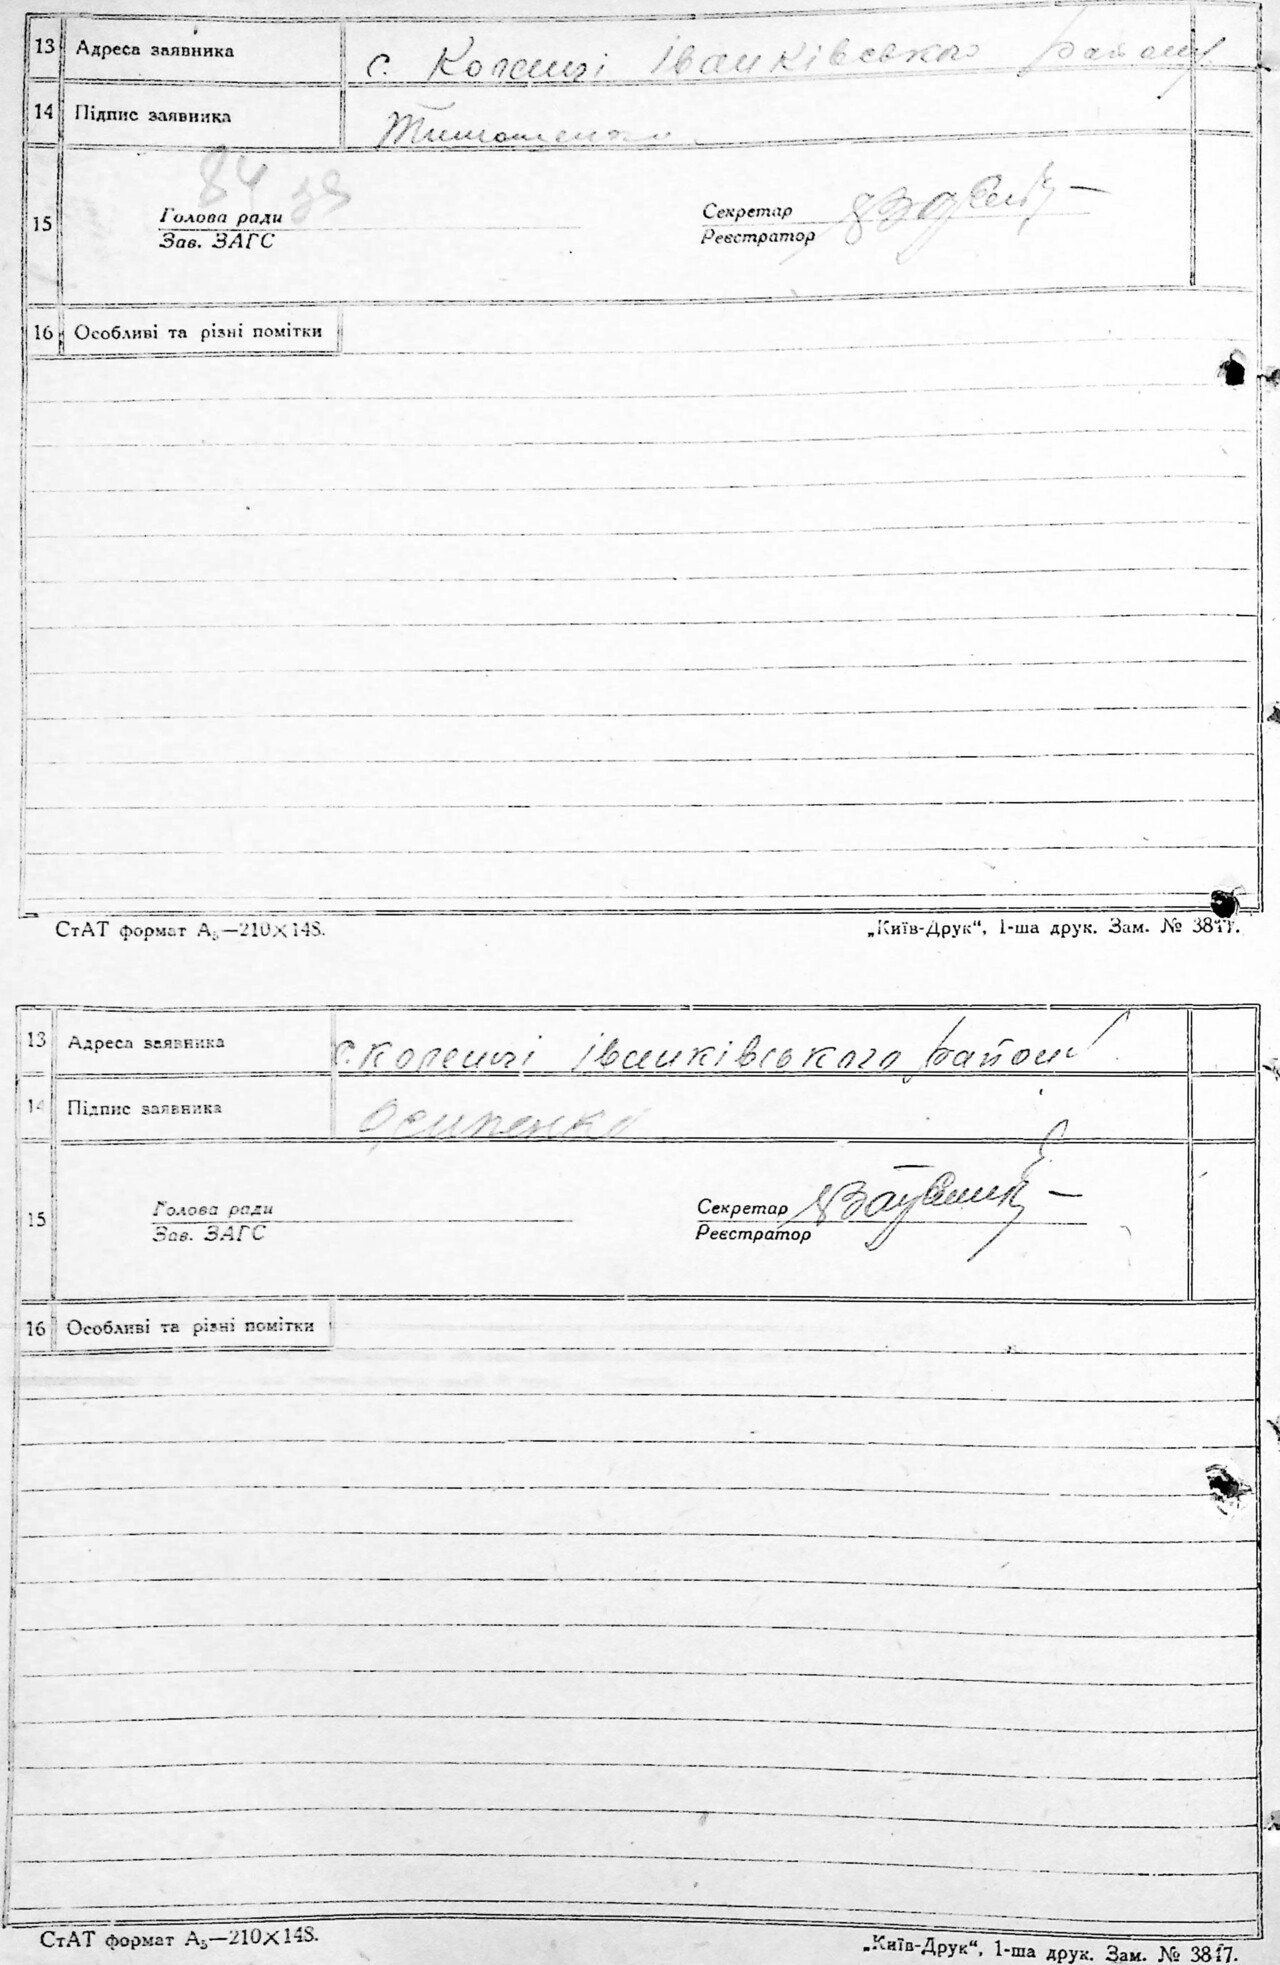 13 Адреса заявника с. Коленці Іванківського району
14 Підпис заявника Тимошенко
84 зв
15 Голова ради Секретар
Зав. ЗАГС Реєстратор
16 Особливі та різні помітки
СтАТ формат А₅—210×148. „Київ-Друк“, 1-ша друк. Зам. № 3817.
13 Адреса заявника с. Коленці Іванківського району
14 Підпис заявника Осипенко
15 Голова ради Секретар
Зав. ЗАГС Реєстратор
16 Особливі та різні помітки
СтАТ формат А₅—210×148. „Київ-Друк“, 1-ша друк. Зам. № 3817.